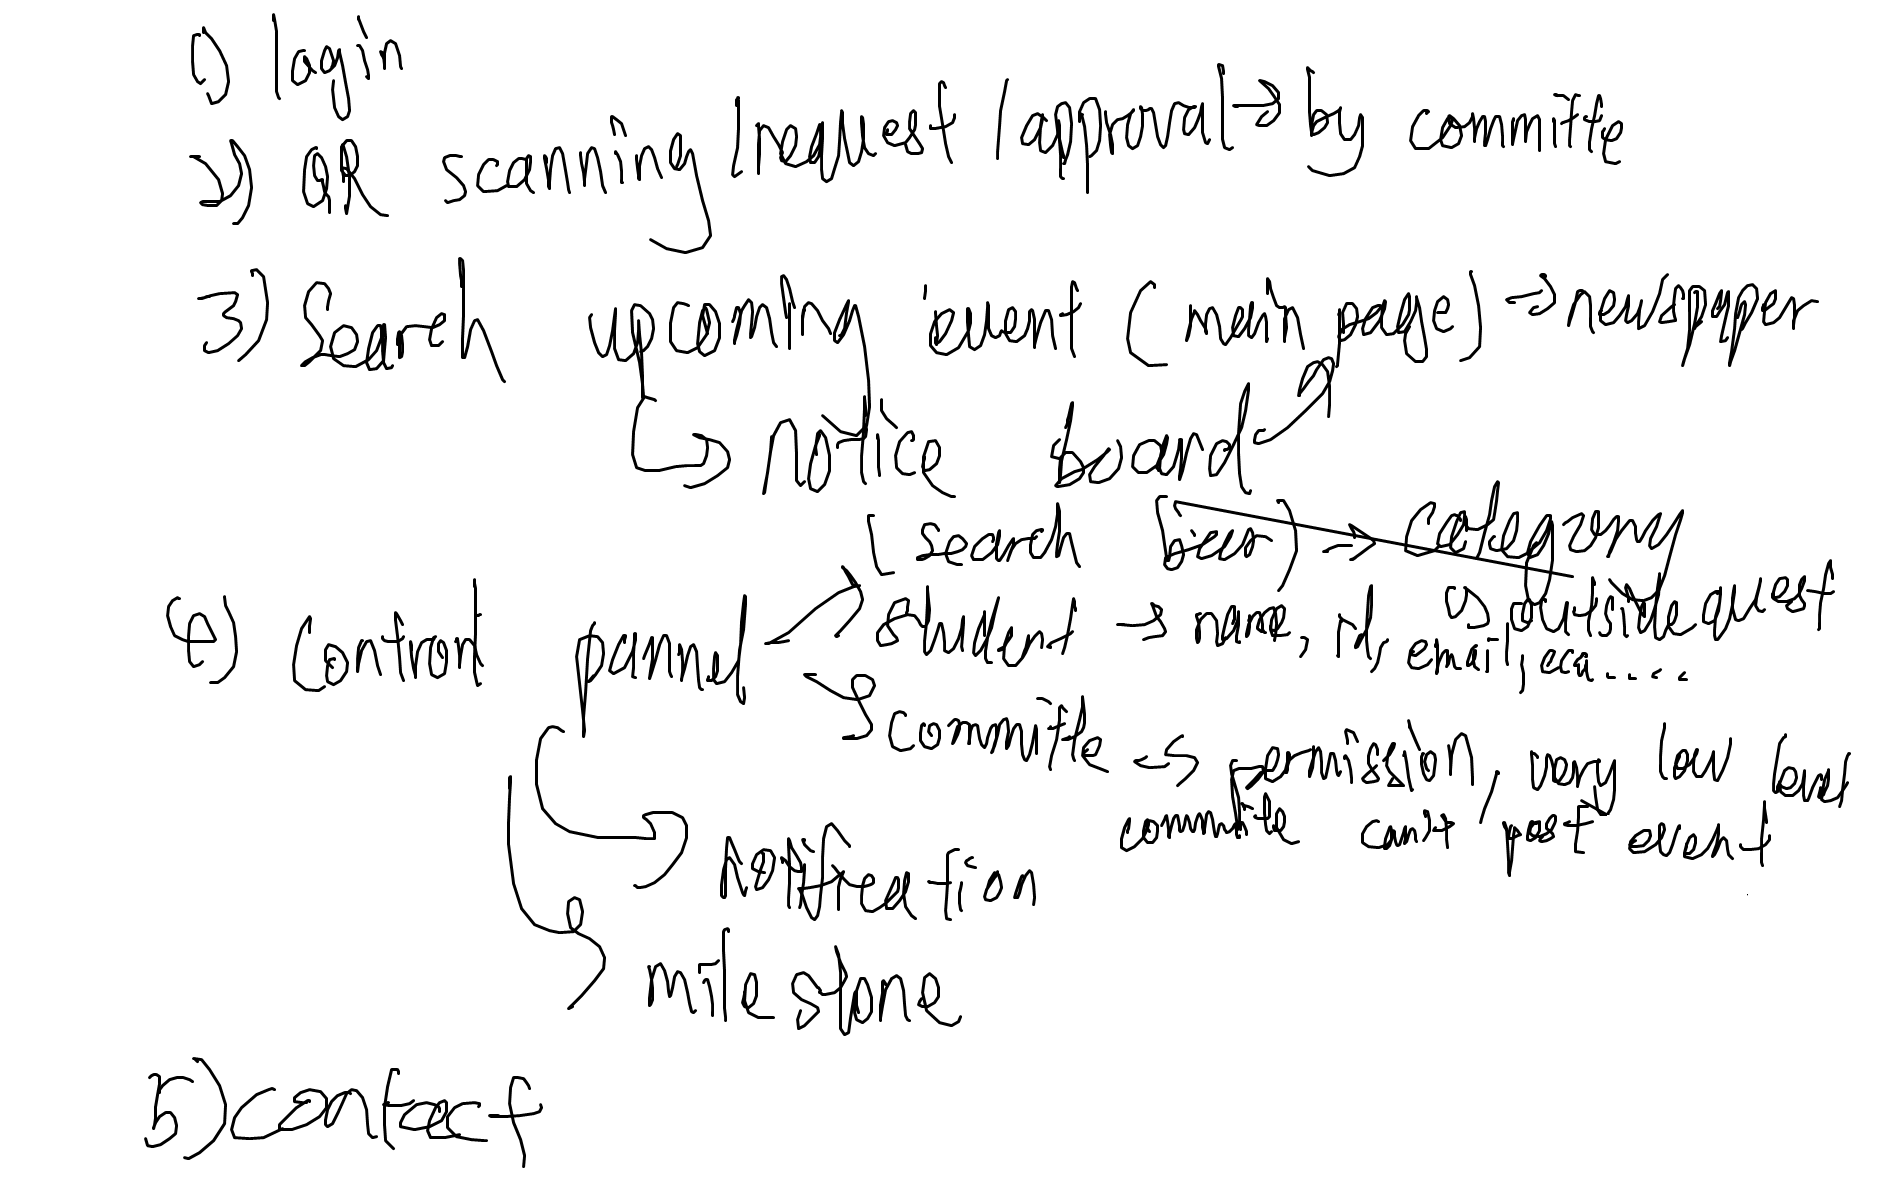 1) login
2) QR scanning / request / approval → by committe
3) Search upcoming event (main page) → newspaper
↳ notice board
(search bar) → category
↳ outside guest
4) Control pannel → student → name, id, email, eca.....
→ committe → permission, very low level
committe can't post event
→ notification
→ milestone
5) contact